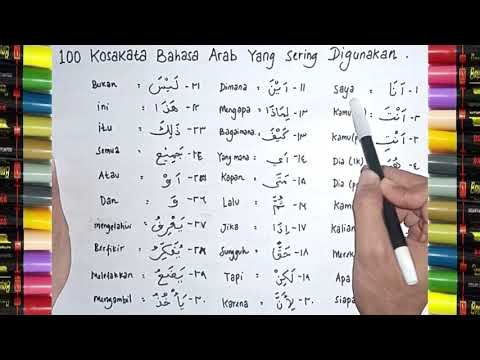 100 Kosakata Bahasa Arab Yang Sering Digunakan .
Saya : اَنَا -١
Kamu( اَنْتَ -٢
Kamu(p اَنْتِ -٣
Dia (lk) هُوَ -٤
Dia (p
Kam
Kalian
Merek
Apa
Siapa
Dimana : اَيْنَ -١١
Mengapa : لِمَاذَا -١٢
Bagaimana : كَيْفَ -١٣
Yang mana : اَي -١٤
Kapan : مَتَى -١٥
Lalu : ثُمَّ -١٦
Jika : اِذَا -١٧
Sungguh : حَقًّا -١٨
Tapi : لَكِنْ -١٩
Karena : لِأَنَّ -٢٠
Bukan : لَيْسَ -٢١
ini : هَذَا -٢٢
itu : ذَلِكَ -٢٣
Semua : جَمِيْع -٢٤
Atau : اَوْ -٢٥
Dan : وَ -٢٦
mengetahui : يَعْرِفُ -٢٧
Berfikir : يُفَكِّرُ -٢٨
Meletakkan : يَضَعُ -٢٩
Mengambil : يَأْخُذُ -٣٠